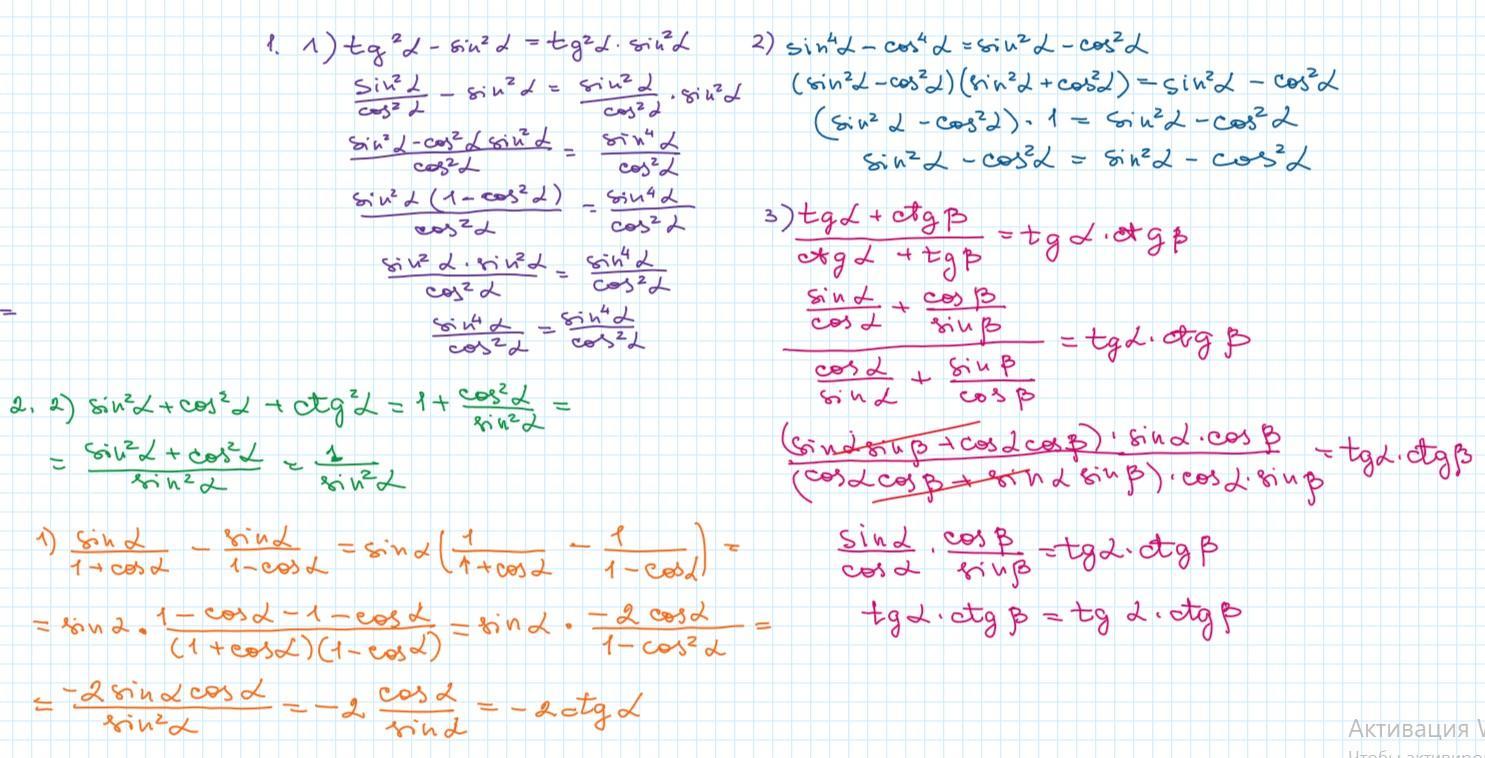 1. 1) tg²α - sin²α = tg²α · sin²α
sin²α/cos²α - sin²α = sin²α/cos²α · sin²α
(sin²α - cos²α sin²α)/cos²α = sin⁴α/cos²α
sin²α (1 - cos²α)/cos²α = sin⁴α/cos²α
(sin²α · sin²α)/cos²α = sin⁴α/cos²α
sin⁴α/cos²α = sin⁴α/cos²α
=
2) sin⁴α - cos⁴α = sin²α - cos²α
(sin²α - cos²α)(sin²α + cos²α) = sin²α - cos²α
(sin²α - cos²α) · 1 = sin²α - cos²α
sin²α - cos²α = sin²α - cos²α
3) (tgα + ctgβ)/(ctgα + tgβ) = tgα · ctgβ
(sinα/cosα + cosβ/sinβ)/(cosα/sinα + sinβ/cosβ) = tgα · ctgβ
((sinα sinβ + cosα cosβ) · sinα · cosβ)/((cosα cosβ + sinα sinβ) · cosα · sinβ) = tgα · ctgβ
sinα/cosα · cosβ/sinβ = tgα · ctgβ
tgα · ctgβ = tgα · ctgβ
2. 2) sin²α + cos²α + ctg²α = 1 + cos²α/sin²α =
= (sin²α + cos²α)/sin²α = 1/sin²α
1) sinα/(1 + cosα) - sinα/(1 - cosα) = sinα (1/(1 + cosα) - 1/(1 - cosα)) =
= sinα · (1 - cosα - 1 - cosα)/((1 + cosα)(1 - cosα)) = sinα · (-2 cosα)/(1 - cos²α) =
= (-2 sinα cosα)/sin²α = -2 cosα/sinα = -2ctgα
Активация